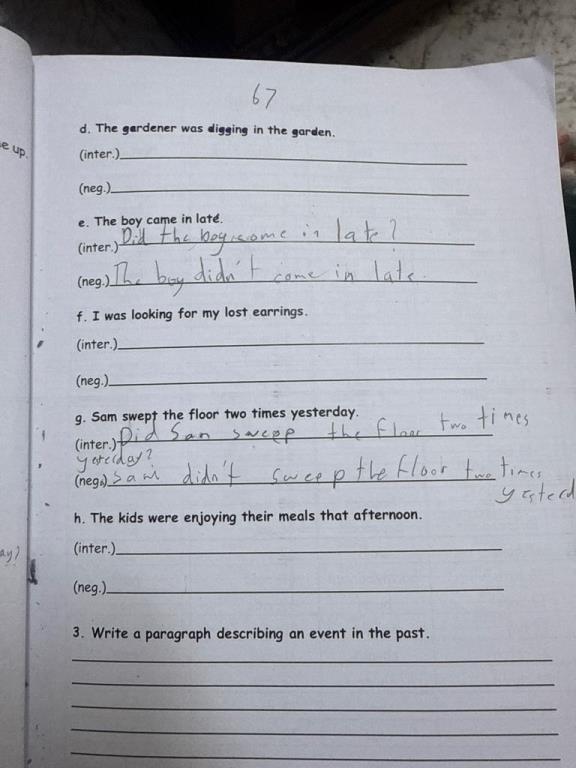 67
e up.
d. The gardener was digging in the garden.
(inter.)
(neg.)
e. The boy came in late.
(inter.) Did the boy come in late?
(neg.) The boy didn't come in late.
f. I was looking for my lost earrings.
(inter.)
(neg.)
g. Sam swept the floor two times yesterday.
(inter.) Did Sam sweep the floor two times
yesterday?
(neg.) Sam didn't sweep the floor two times
yesterd
h. The kids were enjoying their meals that afternoon.
(inter.)
ay?
(neg.)
3. Write a paragraph describing an event in the past.